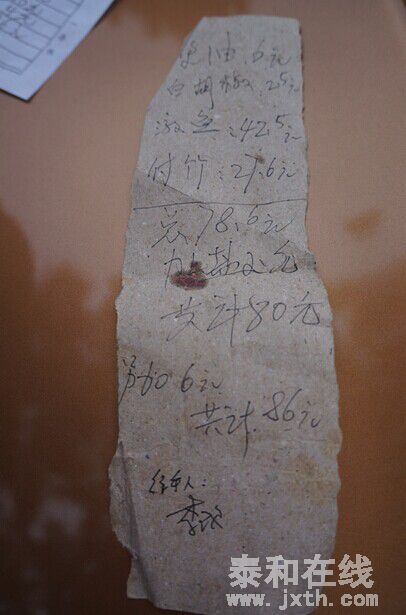 油.6元
白胡椒.2.5元
:42.5元
付竹:27.6元
78.6元
加盐2元
共计80元
另加6元
共计.86元
经手人:
李
泰和在线
www.jxth.com